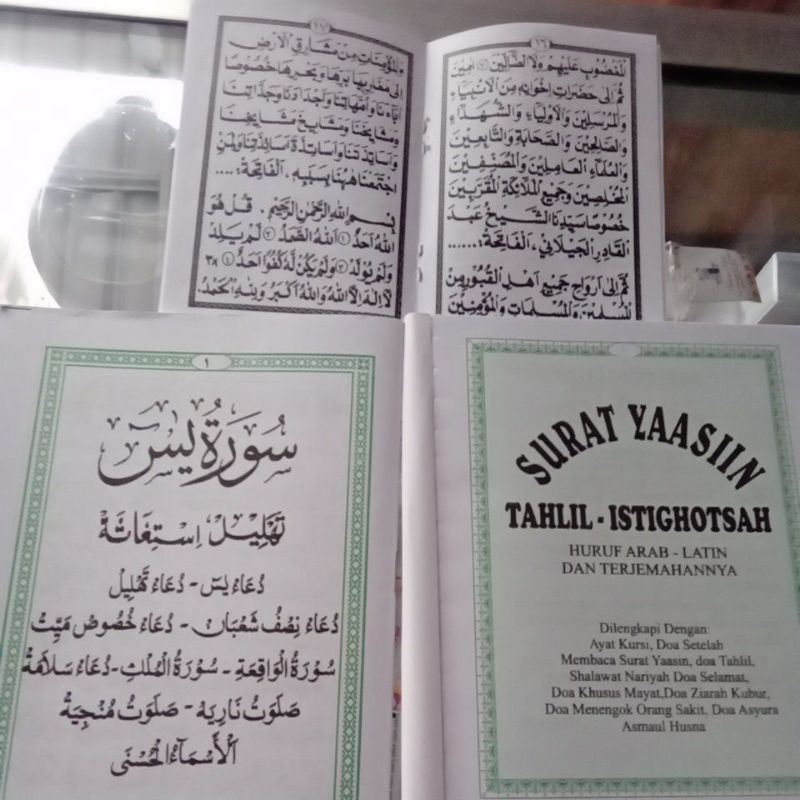 ١٦
الْمَغْضُوْبِ عَلَيْهِمْ وَلَا الضَّآلِّيْنَ (٧) اٰمِيْنَ
ثُمَّ اِلَى حَضَرَاتِ اِخْوَانِهِ مِنَ الْاَنْبِيَاءِ
وَالْمُرْسَلِيْنَ وَالْاَوْلِيَاءِ وَالشُّهَدَاءِ
وَالصَّالِحِيْنَ وَالصَّحَابَةِ وَالتَّابِعِيْنَ
وَالْعُلَمَاءِ الْعَامِلِيْنَ وَالْمُصَنِّفِيْنَ
الْمُخْلِصِيْنَ وَجَمِيْعِ الْمَلَائِكَةِ الْمُقَرَّبِيْنَ
خُصُوْصًا سَيِّدِنَا الشَّيْخِ عَبْدِ
الْقَادِرِ الْجَيْلَانِي، اَلْفَاتِحَةُ:......
ثُمَّ اِلَى اَرْوَاحِ جَمِيْعِ اَهْلِ الْقُبُوْرِ مِنَ
الْمُسْلِمِيْنَ وَالْمُسْلِمَاتِ وَالْمُؤْمِنِيْنَ
١٧
وَالْمُؤْمِنَاتِ مِنْ مَشَارِقِ الْاَرْضِ
اِلَى مَغَارِبِهَا بَرِّهَا وَبَحْرِهَا خُصُوْصًا
اٰبَاءَنَا وَاُمَّهَاتِنَا وَاَجْدَادَنَا وَجَدَّاتِنَا
وَمَشَايِخَنَا وَمَشَايِخَ مَشَايِخِنَا
وَاَسَاتِذَتَنَا وَاَسَاتِذَةَ اَسَاتِذَتِنَا وَلِمَنِ
اجْتَمَعْنَا هٰهُنَا بِسَبَبِهِ. اَلْفَاتِحَةُ:....
بِسْمِ اللّٰهِ الرَّحْمٰنِ الرَّحِيْمِ. قُلْ هُوَ
اللّٰهُ اَحَدٌ (١) اَللّٰهُ الصَّمَدُ (٢) لَمْ يَلِدْ
وَلَمْ يُوْلَدْ (٣) وَلَمْ يَكُنْ لَّهٗ كُفُوًا اَحَدٌ (٤) ×٣
لَا اِلٰهَ اِلَّا اللّٰهُ وَاللّٰهُ اَكْبَرُ وَلِلّٰهِ الْحَمْدُ.
١
سُوْرَةُ يٰسٓ
تَهْلِيْل اِسْتِغَاثَةْ
دُعَاءُ يٰسٓ - دُعَاءُ تَهْلِيْل
دُعَاءُ نِصْفُ شَعْبَان - دُعَاءُ خُصُوْصُ مَيِّتْ
سُوْرَةُ الْوَاقِعَةِ - سُوْرَةُ الْمُلْكِ - دُعَاءُ سَلَامَةْ
صَلَوَتُ نَارِيَهْ - صَلَوَتُ مُنْجِيَةْ
اَلْاَسْمَاءُ الْحُسْنَى
SURAT YAASIIN
TAHLIL - ISTIGHOTSAH
HURUF ARAB - LATIN
DAN TERJEMAHANNYA
Dilengkapi Dengan:
Ayat Kursi, Doa Setelah
Membaca Surat Yaasin, doa Tahlil,
Shalawat Nariyah Doa Selamat,
Doa Khusus Mayat,Doa Ziarah Kubur,
Doa Menengok Orang Sakit, Doa Asyura
Asmaul Husna